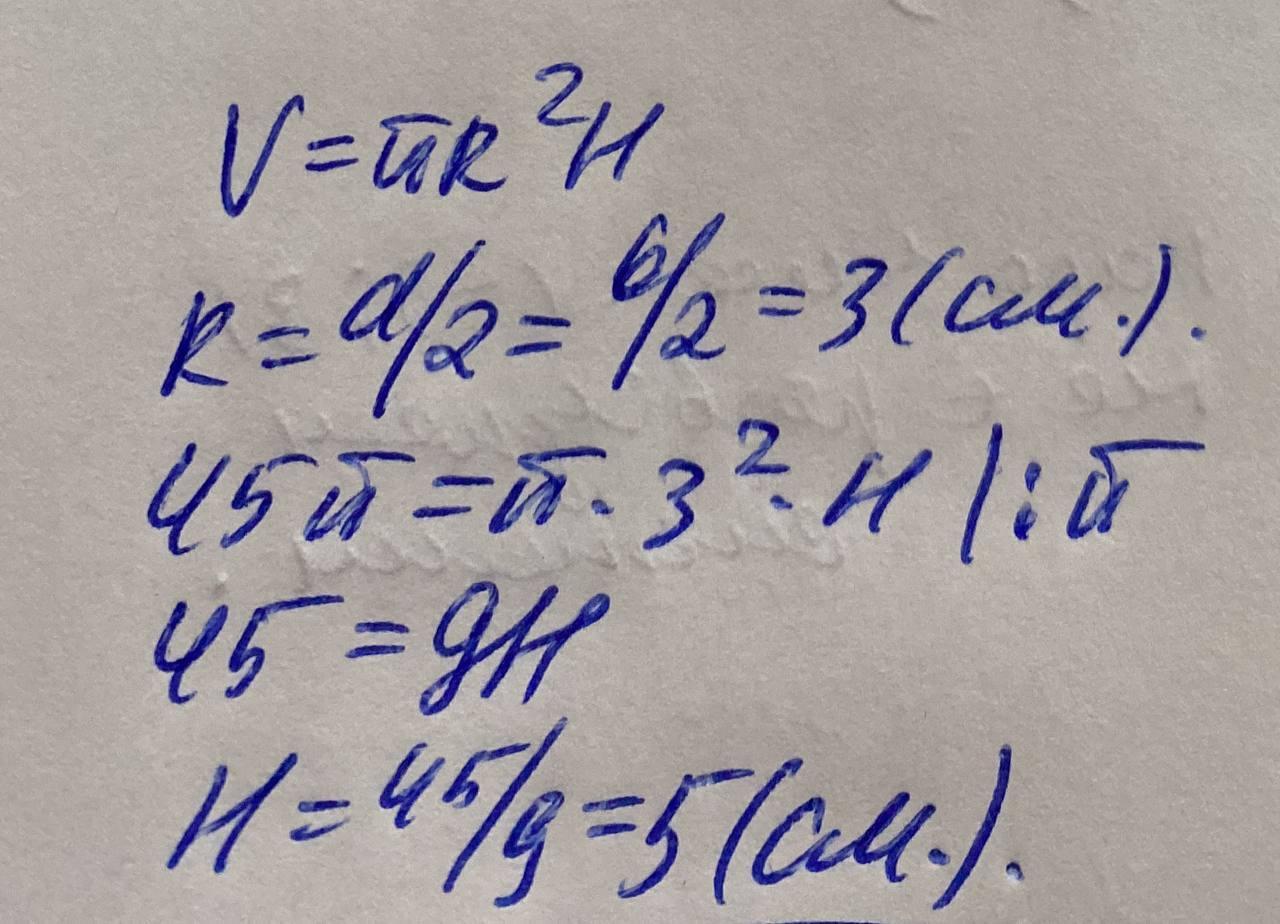 V = πR²H
R = d/2 = 6/2 = 3 (см.).
45π = π · 3² · H |: π
45 = 9H
H = 45/9 = 5 (см.).